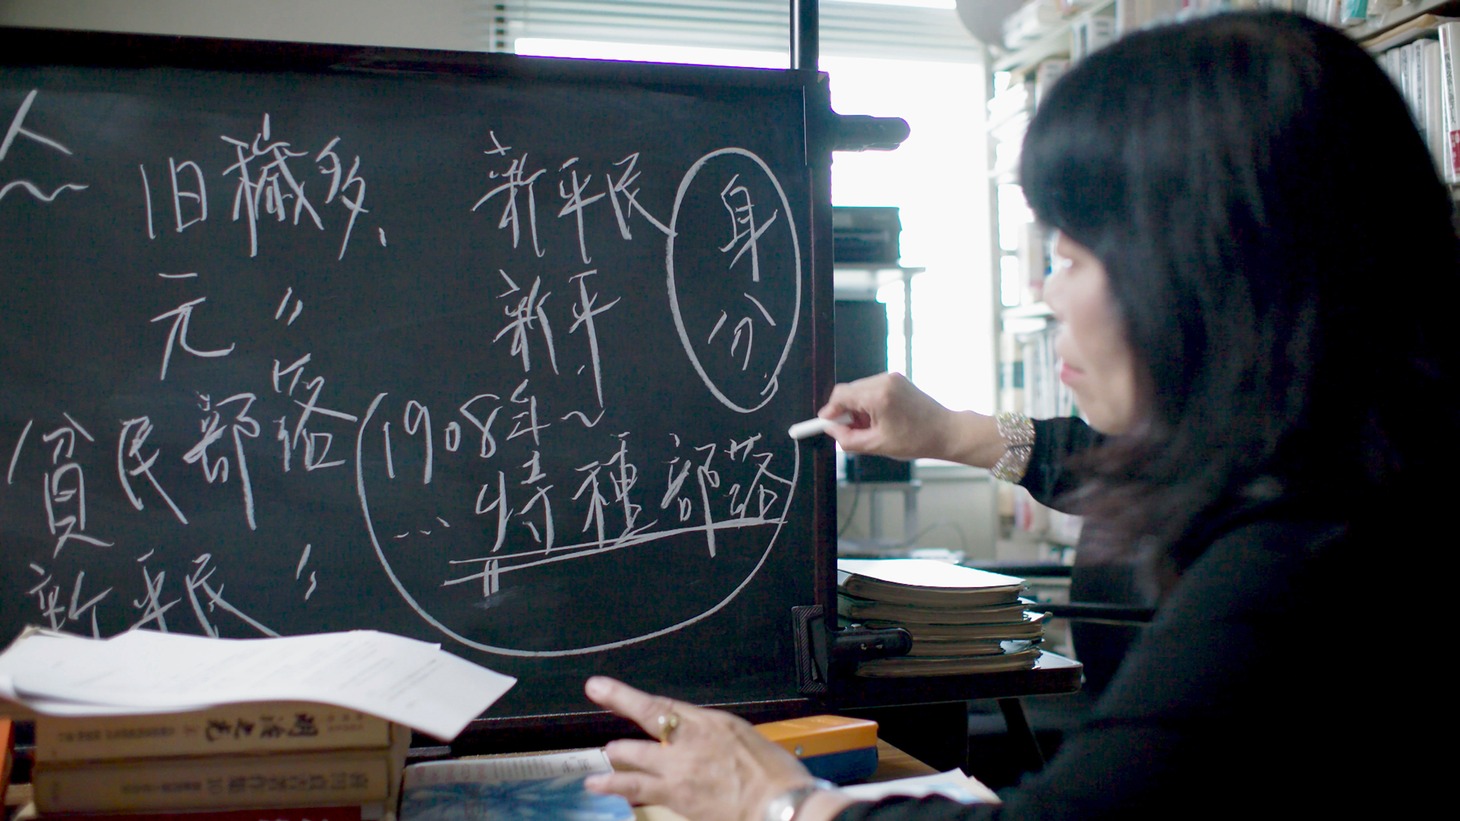 人 旧穢多、 新平民
元 〃 新平
身分
貧民部落 1908年〜
… 特種部落
新平民 〃